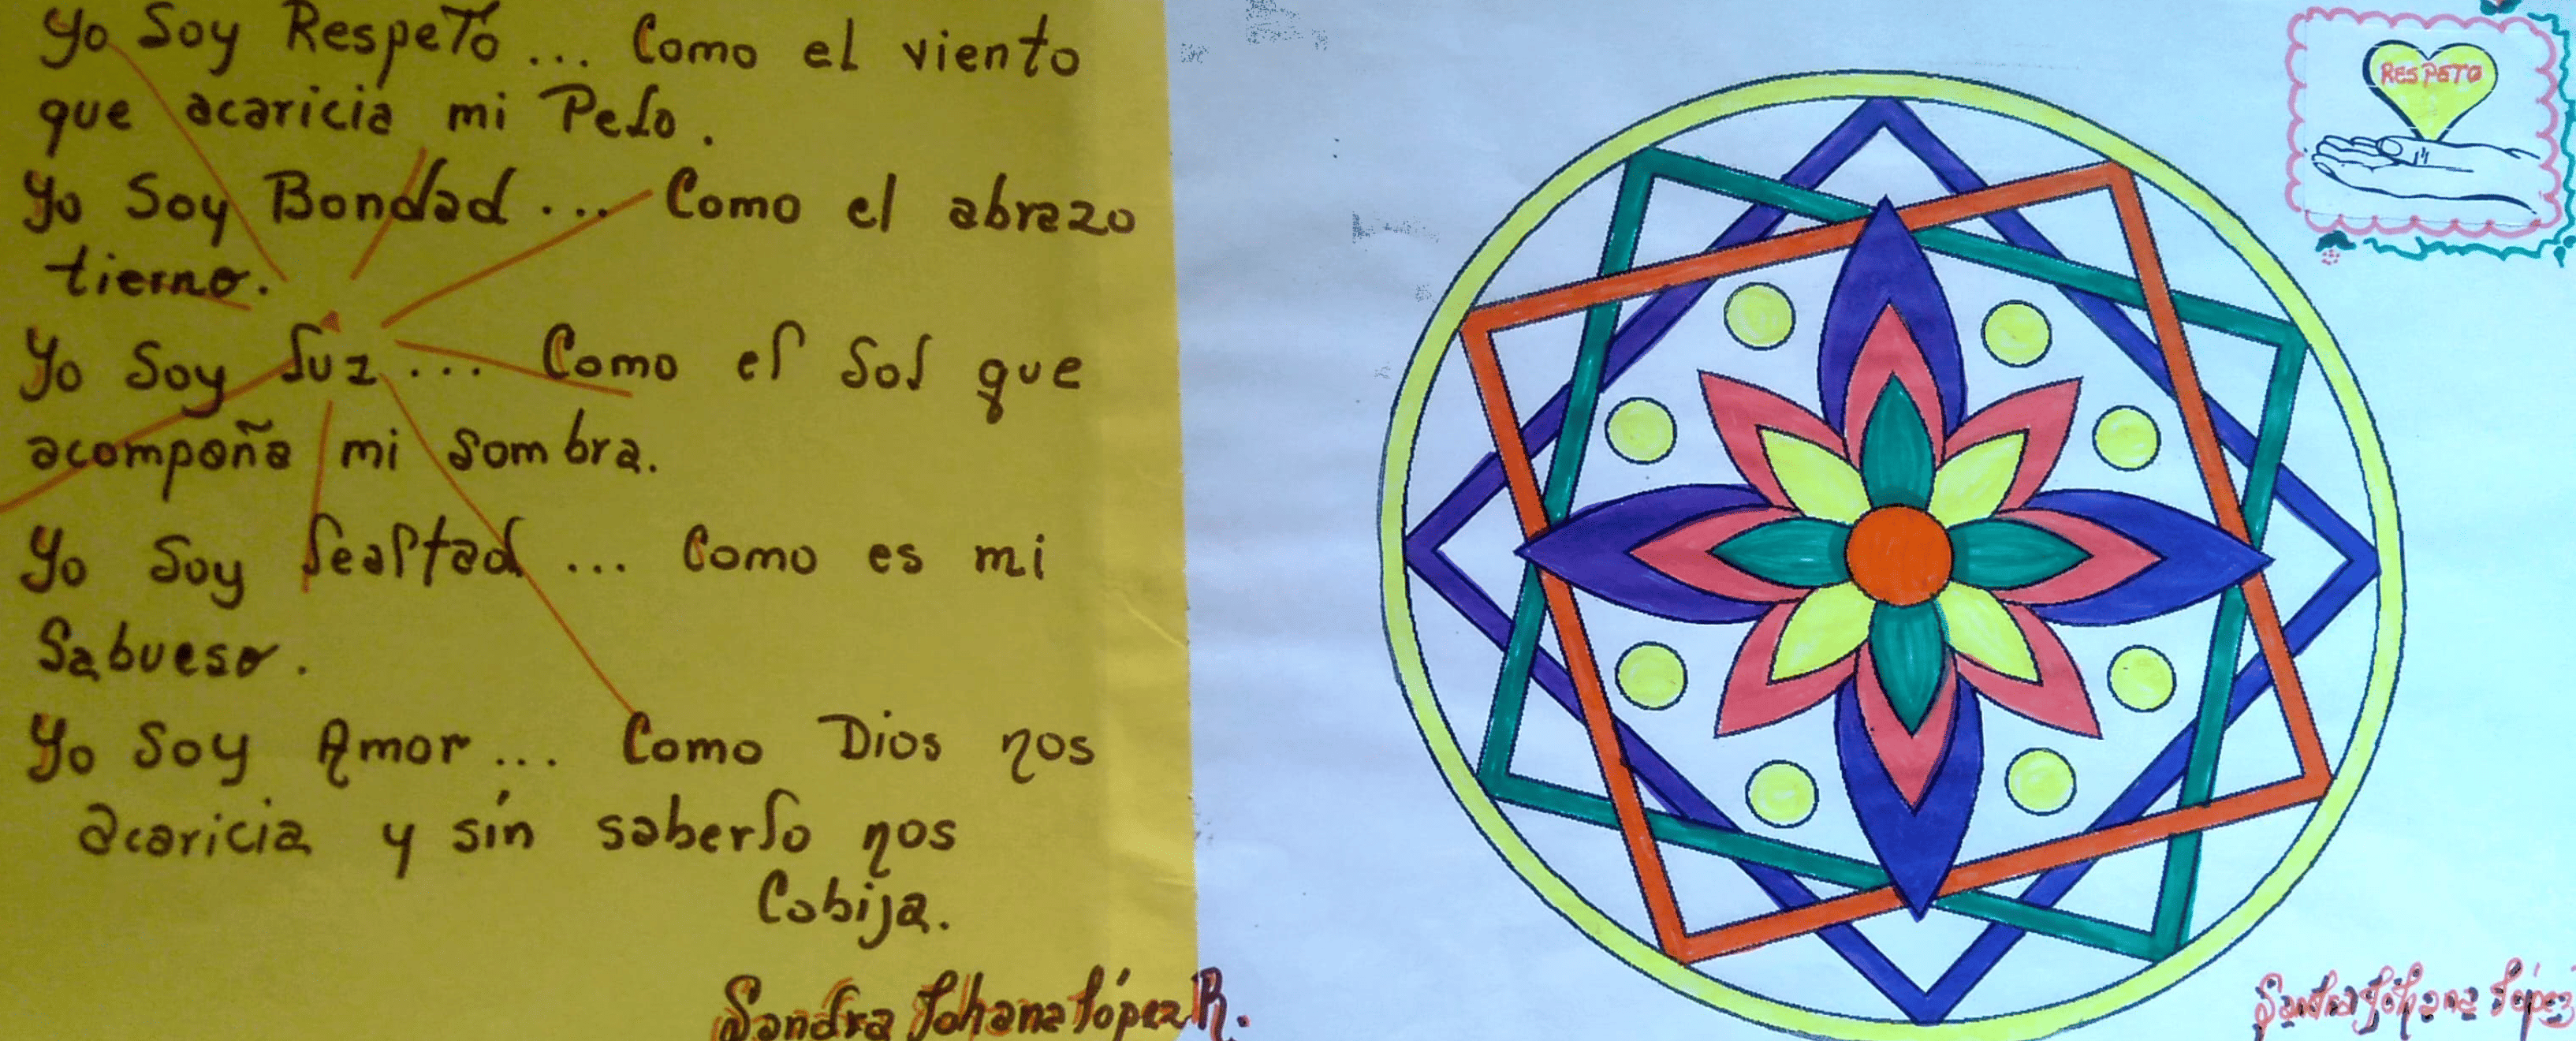 Yo Soy Respeto... Como el viento
que acaricia mi Pelo.
Yo Soy Bondad... Como el abrazo
tierno.
Yo Soy luz... Como el Sol que
acompaña mi sombra.
Yo Soy lealtad... Como es mi
Sabueso.
Yo Soy Amor... Como Dios nos
acaricia y sín saberlo nos
Cobija.
Sandra Johana López R.
RESPETO
Sandra Johana López